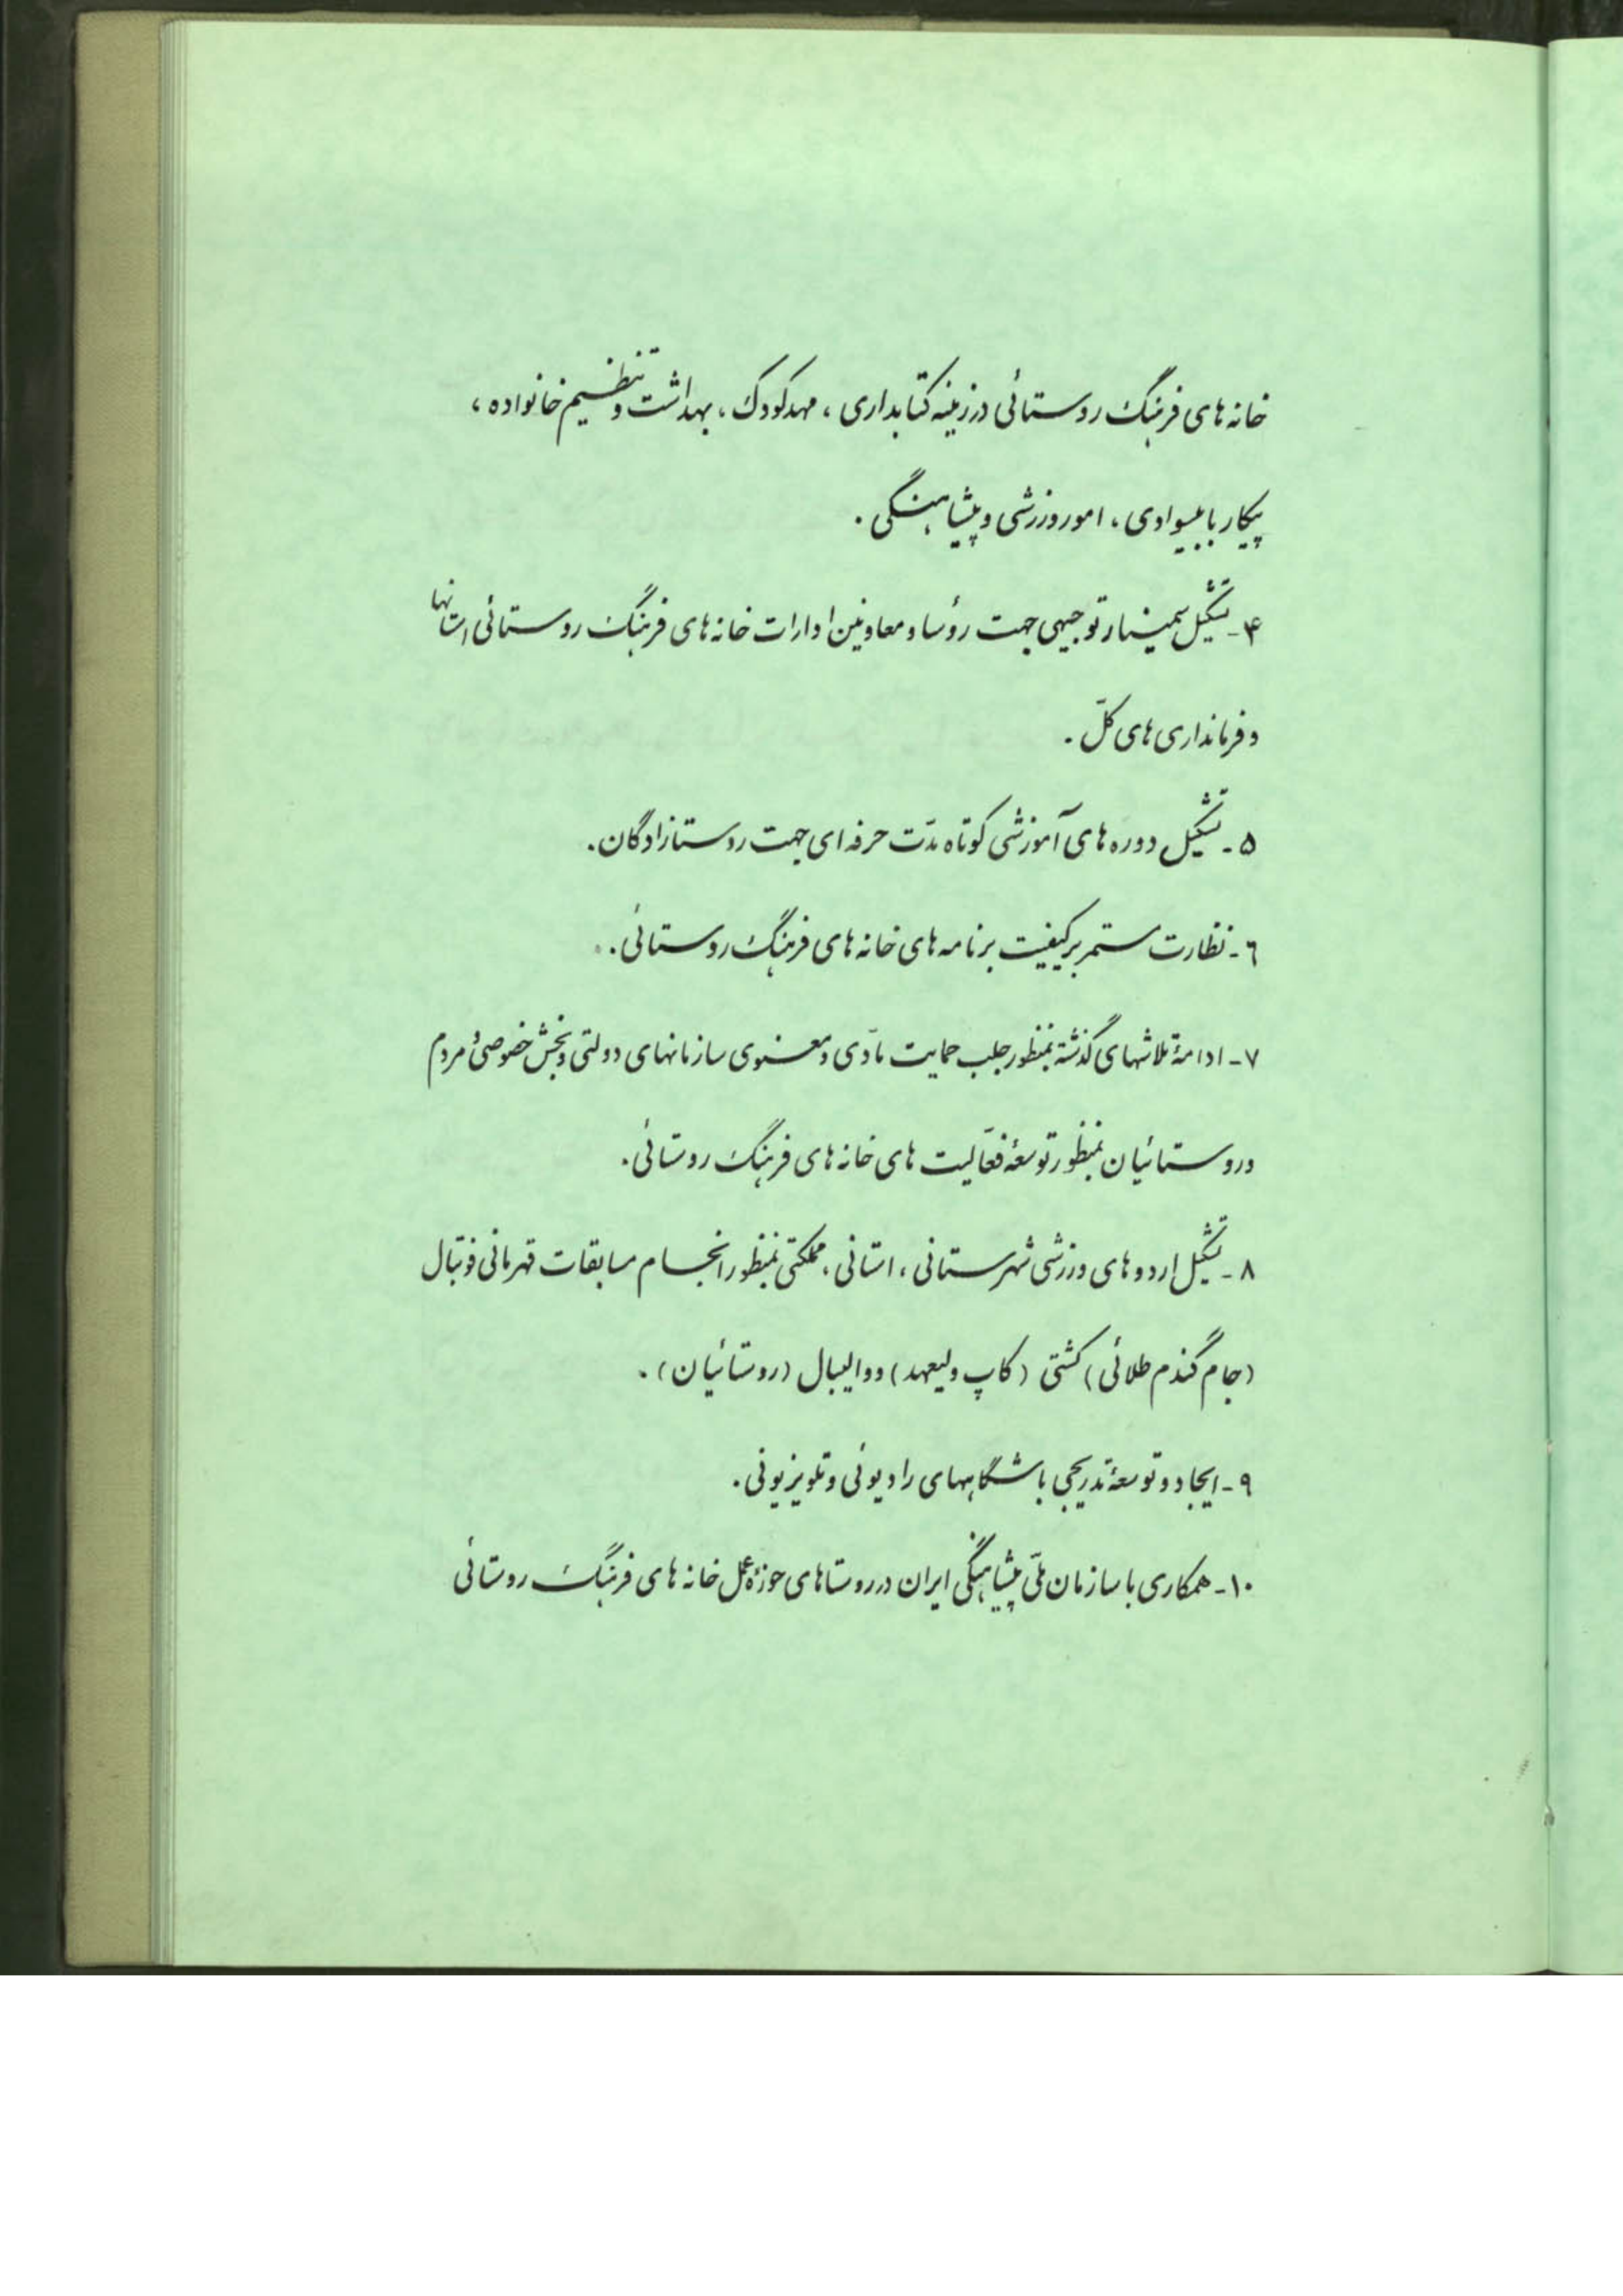 خانه های فرهنگ روستائی در زمینه کتابداری ، مهدکودک ، بهداشت و تنظیم خانواده ،
پیکار با بیسوادی ، امور ورزشی و پیشاهنگی .
۴ - تشکیل سمینار توجیهی جهت رؤسا و معاونین ادارات خانه های فرهنگ روستائی استانها
و فرمانداری های کلّ .
۵ - تشکیل دوره های آموزشی کوتاه مدّت حرفه ای جهت روستازادگان .
۶ - نظارت مستمر بر کیفیت برنامه های خانه های فرهنگ روستائی .
۷ - ادامهٔ تلاشهای گذشته بمنظور جلب حمایت مادّی و معنوی سازمانهای دولتی و بخش خصوصی و مردم
و روستائیان بمنظور توسعهٔ فعّالیت های خانه های فرهنگ روستائی .
۸ - تشکیل اردوهای ورزشی شهرستانی ، استانی ، مملکتی بمنظور انجام مسابقات قهرمانی فوتبال
(جام گندم طلائی) کشتی (کاپ ولیعهد) و والیبال (روستائیان) .
۹ - ایجاد و توسعهٔ تدریجی باشگاههای رادیوئی و تلویزیونی .
۱۰ - همکاری با سازمان ملّی پیشاهنگی ایران در روستاهای حوزهٔ عمل خانه های فرهنگ روستائی